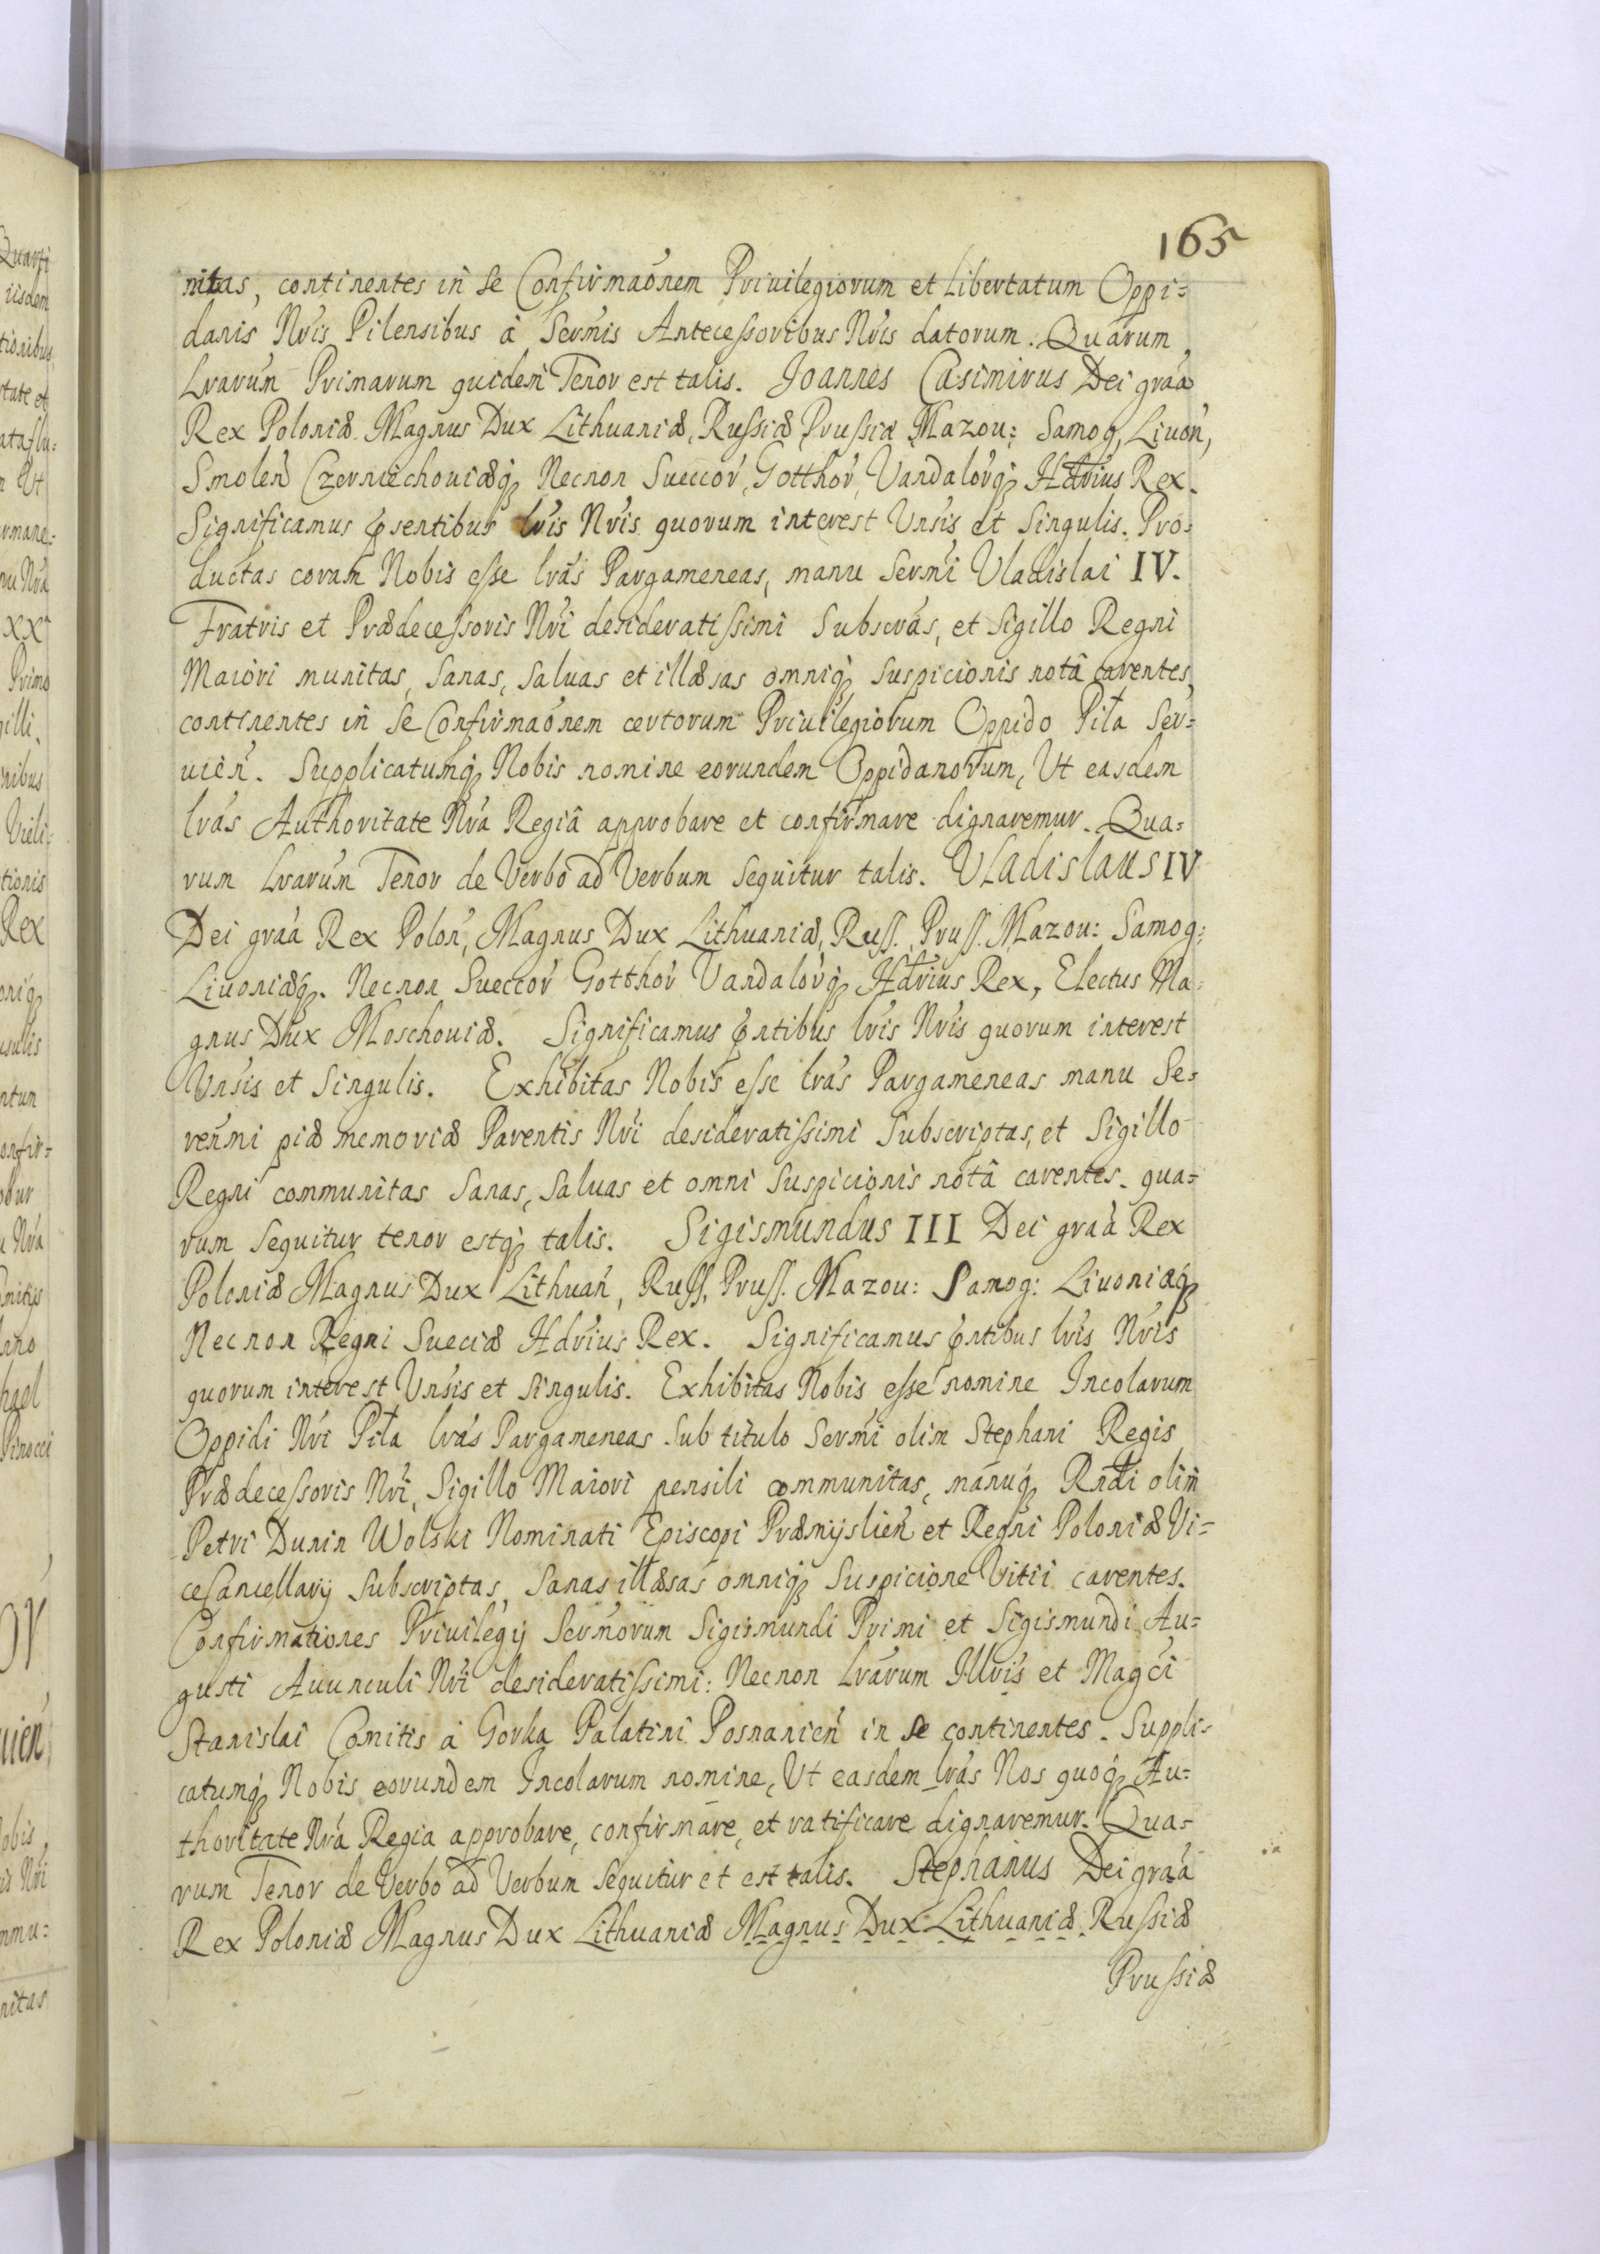 165
nitas, continentes in se Confirmaõnem Priuilegiorum et Libertatum Oppi=
danis Nris Pilensibus à Sermis Antecessoribus Nris datorum. Quarum
Lrarum Primarum quidem Tenor est talis. Joannes Casimirus Dei graa
Rex Poloniæ Magnus Dux Lithuaniæ, Russiæ Prussiæ Mazou: Samog, Liuon,
Smolen Czerniechouiæq; Necnon Sueccor, Gotthor, Vandalorq; Hdrius Rex.
Significamus pñsentibus lris Nris quorum interest Vnsis et Singulis. Pro=
ductas coram Nobis esse lras Pargameneas, manu Sermi Vladislai IV.
Fratris et Prædecessoris Nri desideratissimi Subscras, et Sigillo Regni
Maiori munitas, Sanas, Saluas et illæsas omniq; suspicionis notâ carentes,
continentes in se Confirmaõnem certorum Priuilegiorum Oppido Piła Ser=
uien. Supplicatumq; Nobis nomine eorundem Oppidanorum, Ut easdem
lras Authoritate Nra Regiâ approbare et confirmare dignaremur. Qua=
rum Lrarum Tenor de Verbo ad Verbum sequitur talis. Vladislaus IV
Dei graa Rex Polon, Magnus Dux Lithuaniæ, Russ. Pruss. Mazou: Samog:
Liuoniæq;. Necnon Sueccor Gotthor Vandalorq; Hdrius Rex, Electus Ma=
gnus Dux Moschouiæ. Significamus pñtibus lris Nris quorum interest
Vnsis et Singulis. Exhibitas Nobis esse lras Pargameneas manu Se=
renmi piæ memoriæ Parentis Nri desideratissimi Subscriptas, et Sigillo
Regni communitas Sanas, Saluas et omni suspicionis notâ carentes. qua=
rum sequitur tenor estq; talis. Sigismundus III Dei graa Rex
Poloniæ Magnus Dux Lithuan, Russ, Pruss. Mazou: Samog: Liuoniæq;
Necnon Regni Sueciæ Hdrius Rex. Significamus pñtibus lris Nris
quorum interest Vnsis et singulis. Exhibitas Nobis esse nomine Incolarum
Oppidi Nri Piła lras Pargameneas sub titulo Sermi olim Stephani Regis
Prædecessoris Nri, Sigillo Maiori pensili communitas, manuq; Rndi olim
Petri Dunin Wolski Nominati Episcopi Præmijslien et Regni Poloniæ Vi=
ceCancellarij subscriptas, Sanas illæsas omniq; suspicione Vitii carentes.
Confirmationes Priuilegij Sermorum Sigismundi Primi et Sigismundi Au=
gusti Auunculi Nri desideratissimi: Necnon Lrarum Illris et Magci
Stanislai Comitis à Gorka Palatini Posnanien in se continentes. Suppli=
catumq; Nobis eorundem Incolarum nomine, Ut easdem lras Nos quoq; Au=
thoritate Nra Regia approbare, confirmare, et ratificare dignaremur. Qua=
rum Tenor de Verbo ad Verbum sequitur et est talis. Stephanus Dei graa
Rex Poloniæ Magnus Dux Lithuaniæ Magnus Dux Lithuaniæ Russiæ
Prussiæ